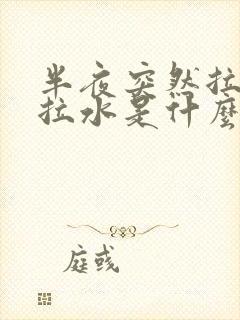 半夜突然拉
拉水是什麼
庭彧